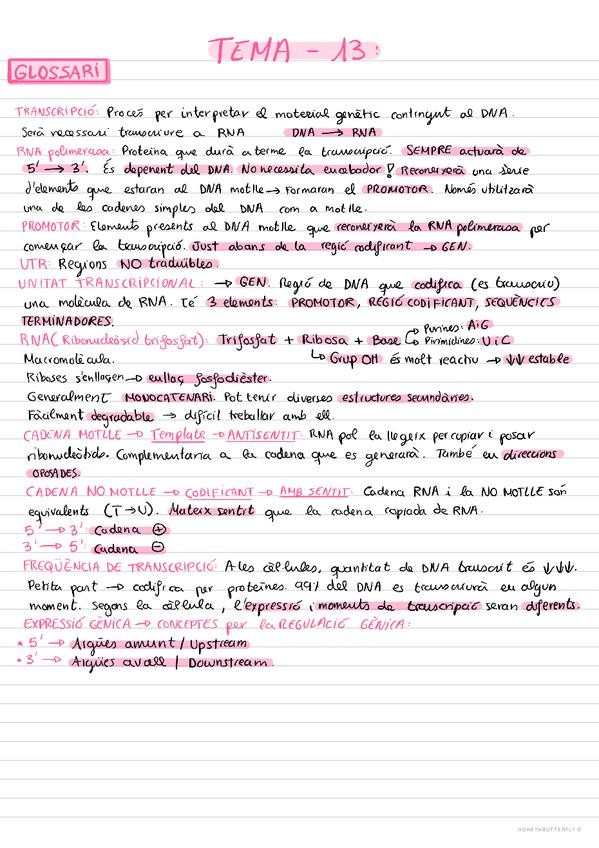 TEMA - 13:
GLOSSARI
TRANSCRIPCIÓ: Procés per interpretar el material genètic contingut al DNA.
Serà necessari transcriure a RNA DNA → RNA
RNA polimerasa: Proteïna que durà a terme la transcripció. SEMPRE actuarà de
5' → 3'. És depenent del DNA. No necessita encebador! Reconeixerà una sèrie
d'elements que estaran al DNA motlle → Formaran el PROMOTOR. Només utilitzarà
una de les cadenes simples del DNA com a motlle.
PROMOTOR: Elements presents al DNA motlle que reconeixerà la RNA polimerasa per
començar la transcripció. Just abans de la regió codificant → GEN.
UTR: Regions NO traduïbles.
UNITAT TRANSCRIPCIONAL: → GEN. Regió de DNA que codifica (es transcriu)
una molècula de RNA. Té 3 elements: PROMOTOR, REGIÓ CODIFICANT, SEQÜÈNCIES
TERMINADORES.
RNA (Ribonucleòsid trifosfat): Trifosfat + Ribosa + Base Purines: A i G Pirimidines: U i C
Macromolècula. Grup OH és molt reactiu → ↓↓ estable
Riboses s'enllaçen → enllaç fosfodièster.
Generalment MONOCATENARI. Pot tenir diverses estructures secundàries.
Fàcilment degradable → difícil treballar amb ell.
CADENA MOTLLE → Template → ANTISENTIT: RNA pol la llegeix per copiar i posar
ribonucleòtids. Complementaria a la cadena que es generarà. També en direccions
oposades.
CADENA NO MOTLLE → CODIFICANT → AMB SENTIT: Cadena RNA i la NO MOTLLE són
equivalents (T→U). Mateix sentit que la cadena copiada de RNA.
5' → 3': Cadena ⊕
3' → 5': Cadena ⊖
FREQÜÈNCIA DE TRANSCRIPCIÓ: A les cèl·lules, quantitat de DNA transcrit és ↓↓↓.
Petita part → codifica per proteïnes. 99% del DNA es transcriurà en algun
moment. Segons la cèl·lula, l'expressió i moments de transcripció seran diferents.
EXPRESSIÓ GÈNICA → CONCEPTES per la REGULACIÓ GÈNICA:
• 5' → Aigües amunt / Upstream
• 3' → Aigües avall / Downstream.
HONEYNBUTTERFLY ©